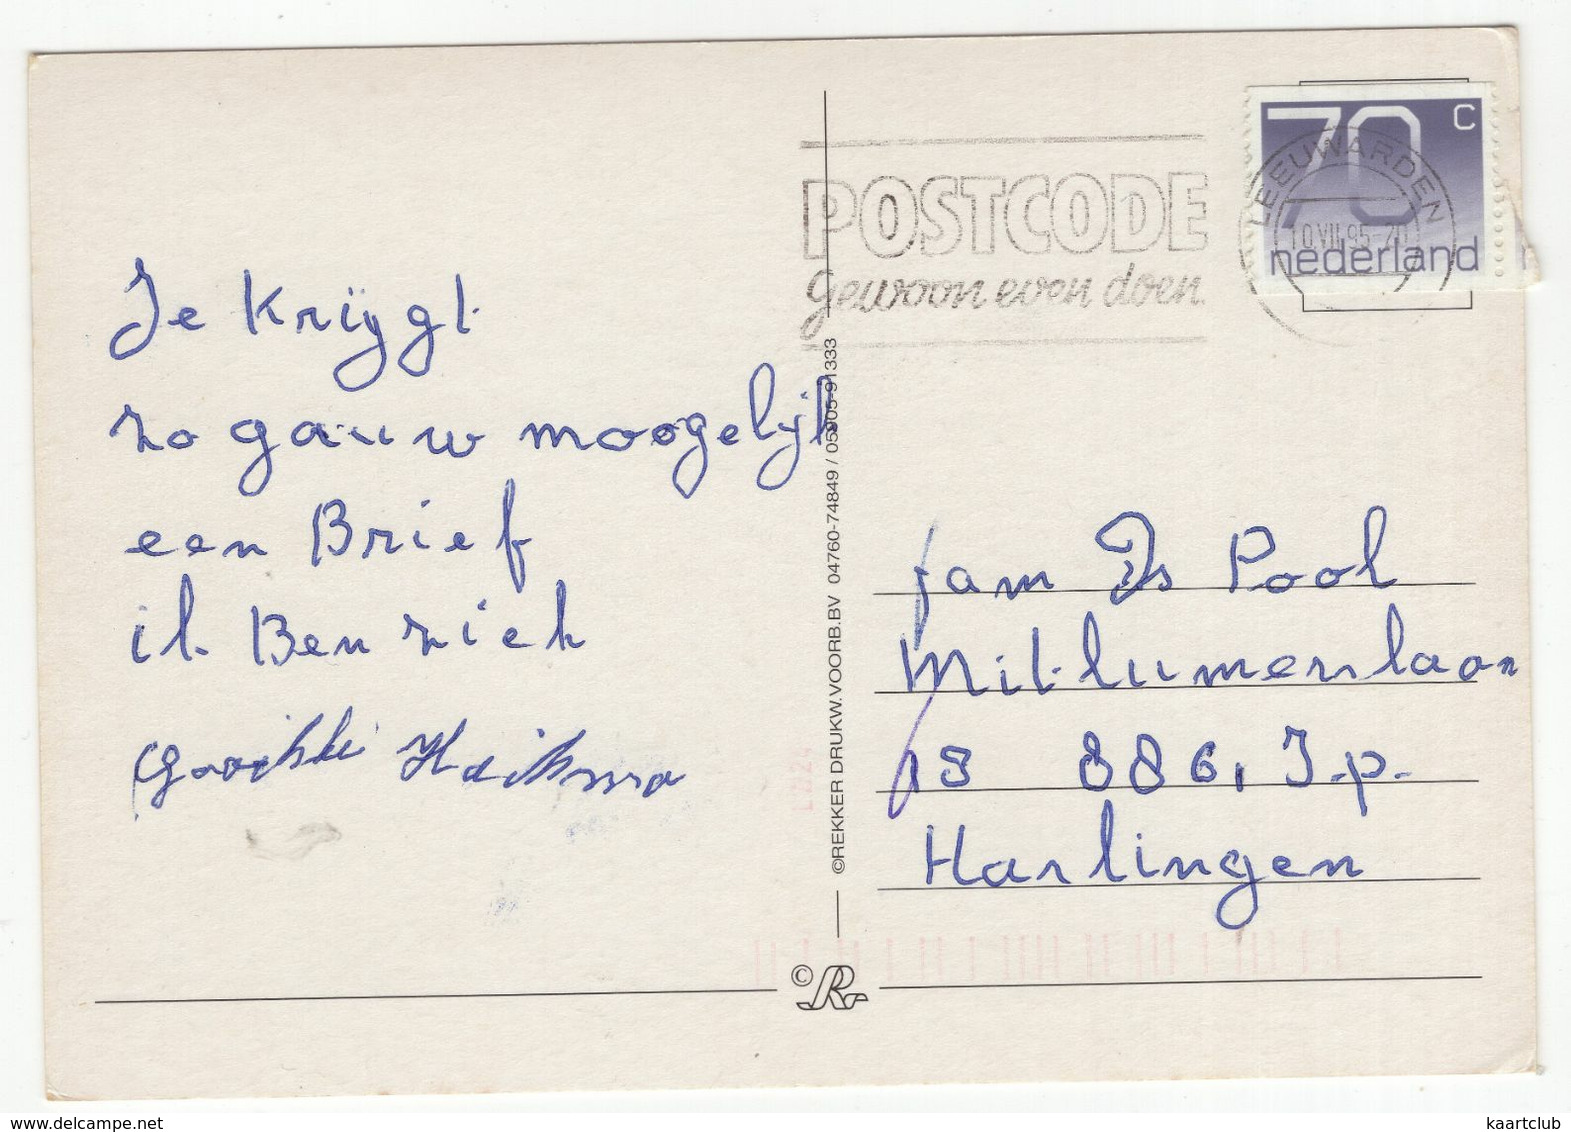 Je Krijgt
zo gauw moogelijk
een Brief
ik Ben ziek
Haitsma
POSTCODE
gewoon even doen.
70 c
nederland
LEEUWARDEN
10.VII.95-20
fam Ds Pool
Mitlumerlaan
13 8861 J.p.
Harlingen
©REKKER DRUKW.VOORB.BV 04760-74849 / 05905-91333
© R
kaartclub